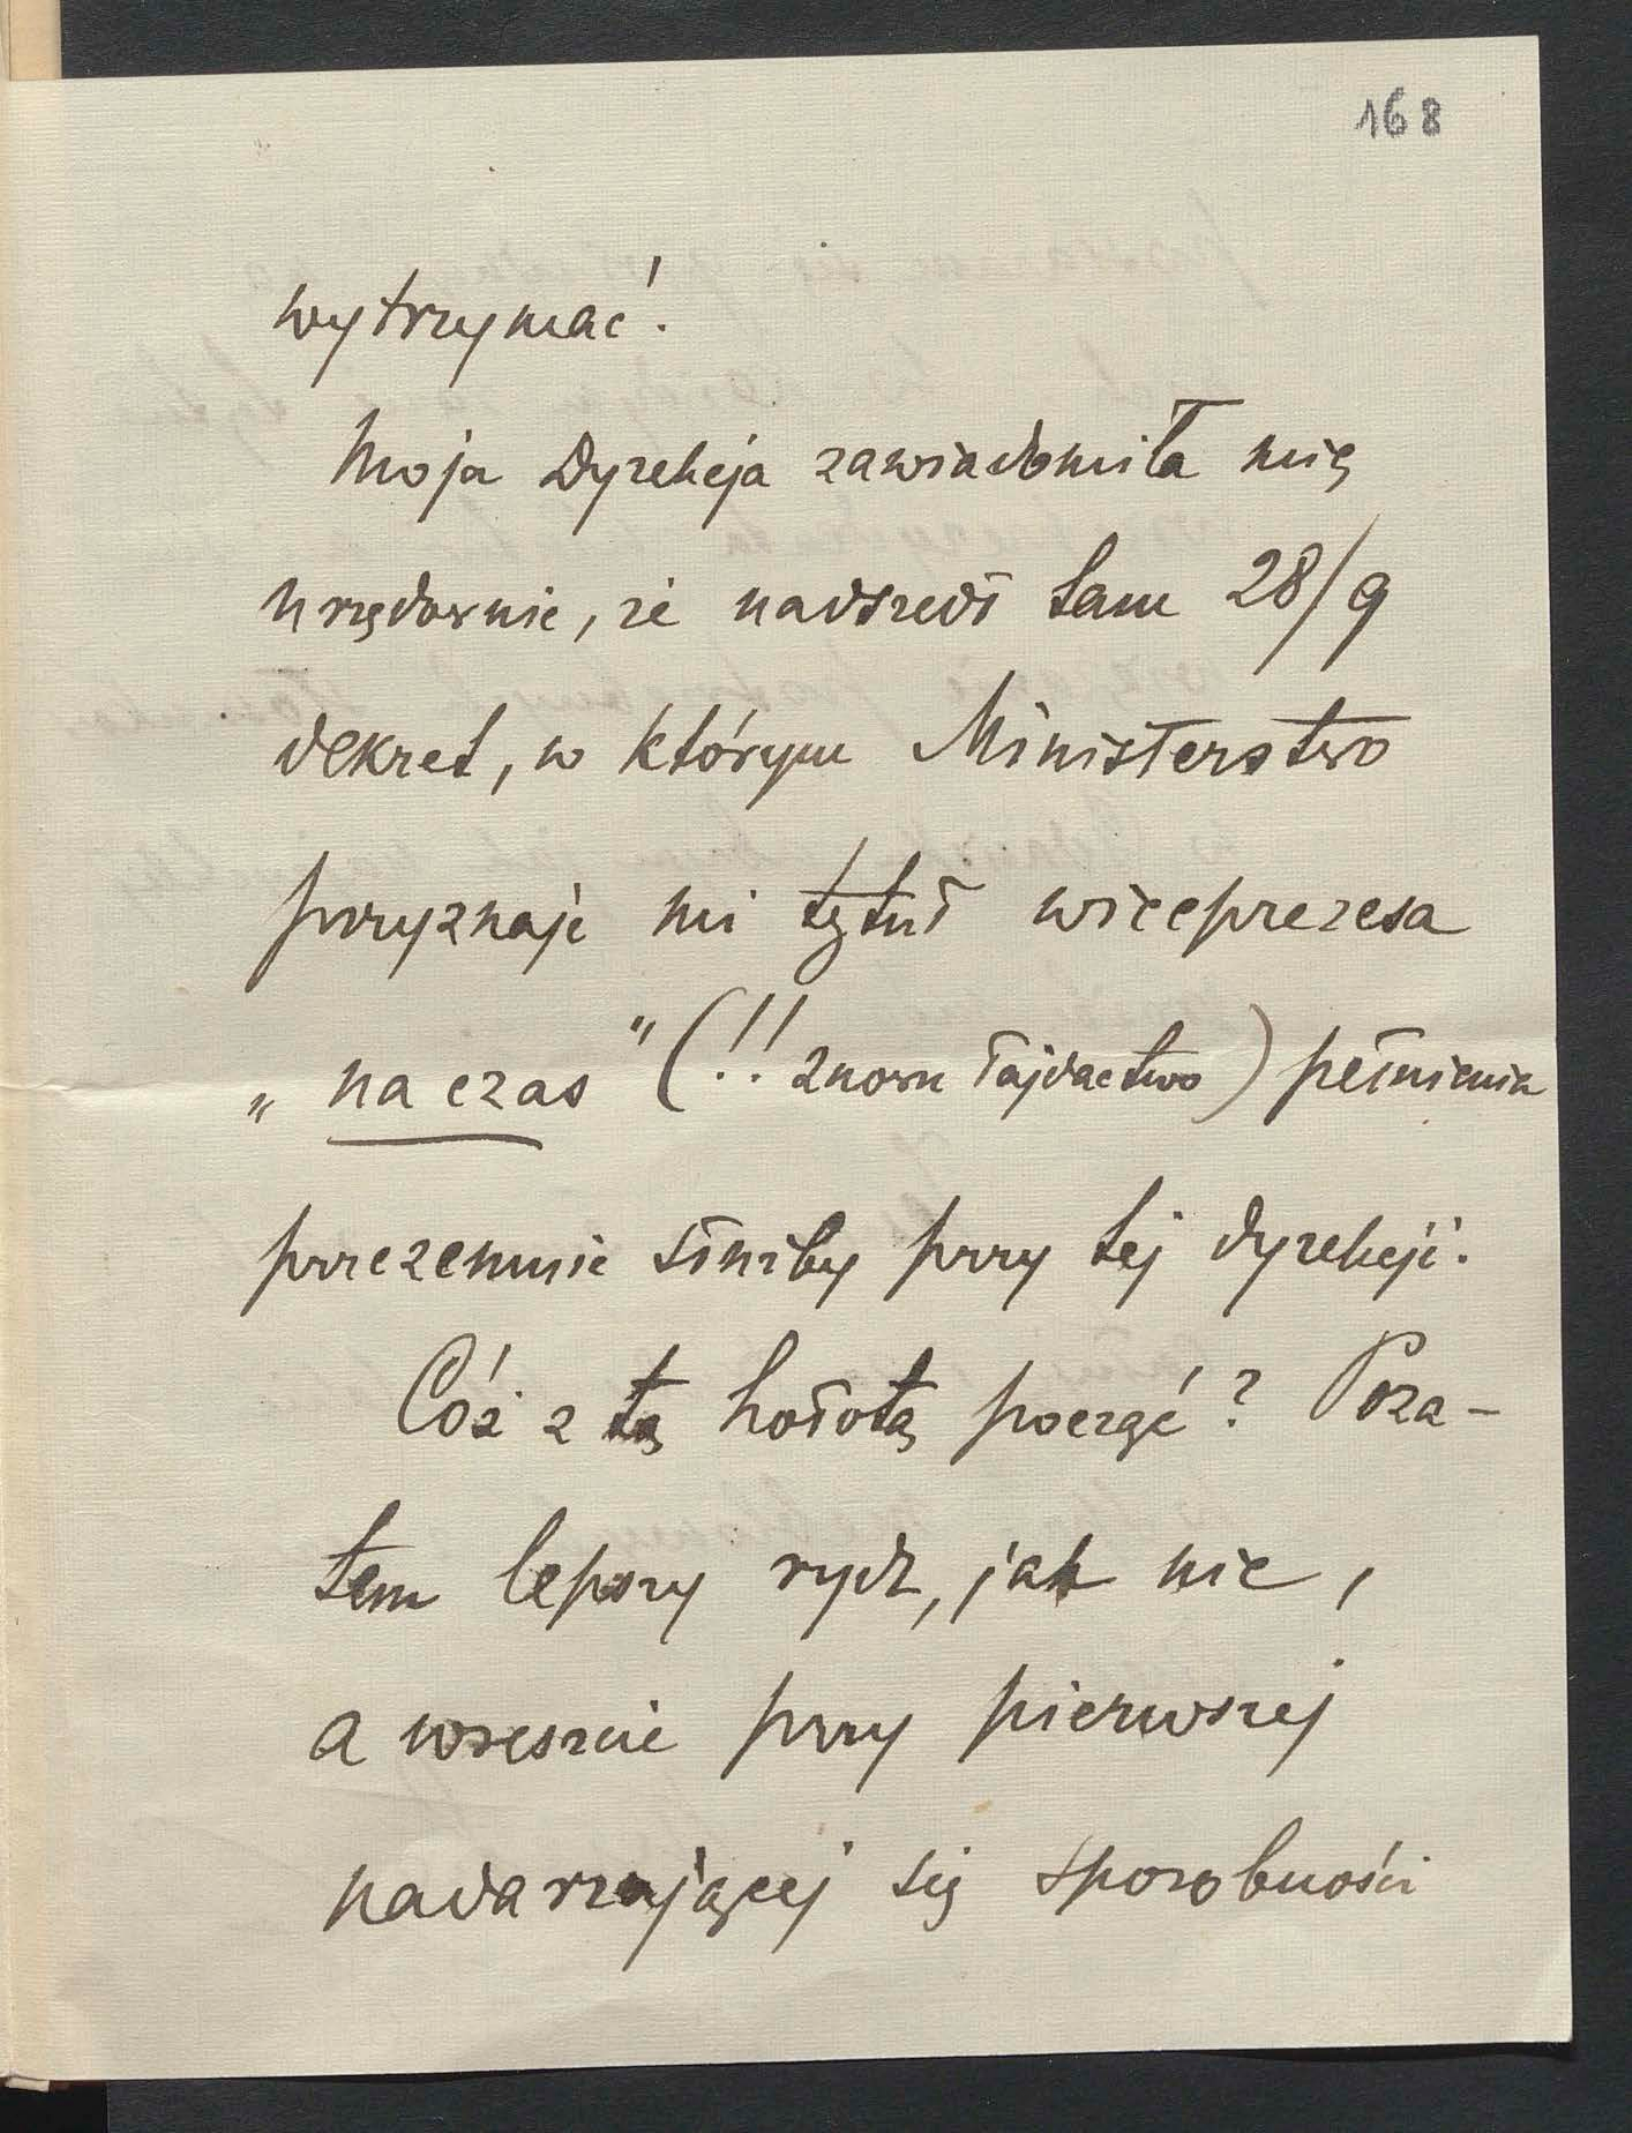 168
wytrzymać!
Moja Dyrekcja zawiadomiła mię
urzędownie, że nadszedł tam 28/9
dekret, w którym Ministerstwo
przyznaje mi tytuł wiceprezesa
„na czas" (!! znowu łajdactwo) pełnienia
przezemnie służby przy tej dyrekcji.
Cóż z tą hołotą począć? Poza-
tem lepszy rydz, jak nic,
a wreszcie przy pierwszej
nadarzającej się sposobności